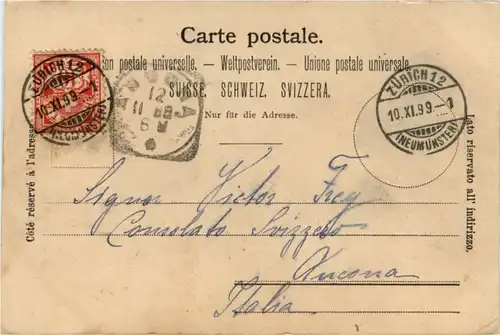 Carte postale.
ion postale universelle. — Weltpostverein. — Unione postale universale
SUISSE. SCHWEIZ. SVIZZERA.
Nur für die Adresse.
Côté réservé à l'adresse.
Lato riservato all' indirizzo.
ZÜRICH 12
10.XI.99.-1
(NEUMÜNSTER)
12
11
8 M
ZÜRICH 12
10.XI.99.-1
(NEUMÜNSTER)
Signor Victor Frey
Consolato Svizzero
Ancona
Italia